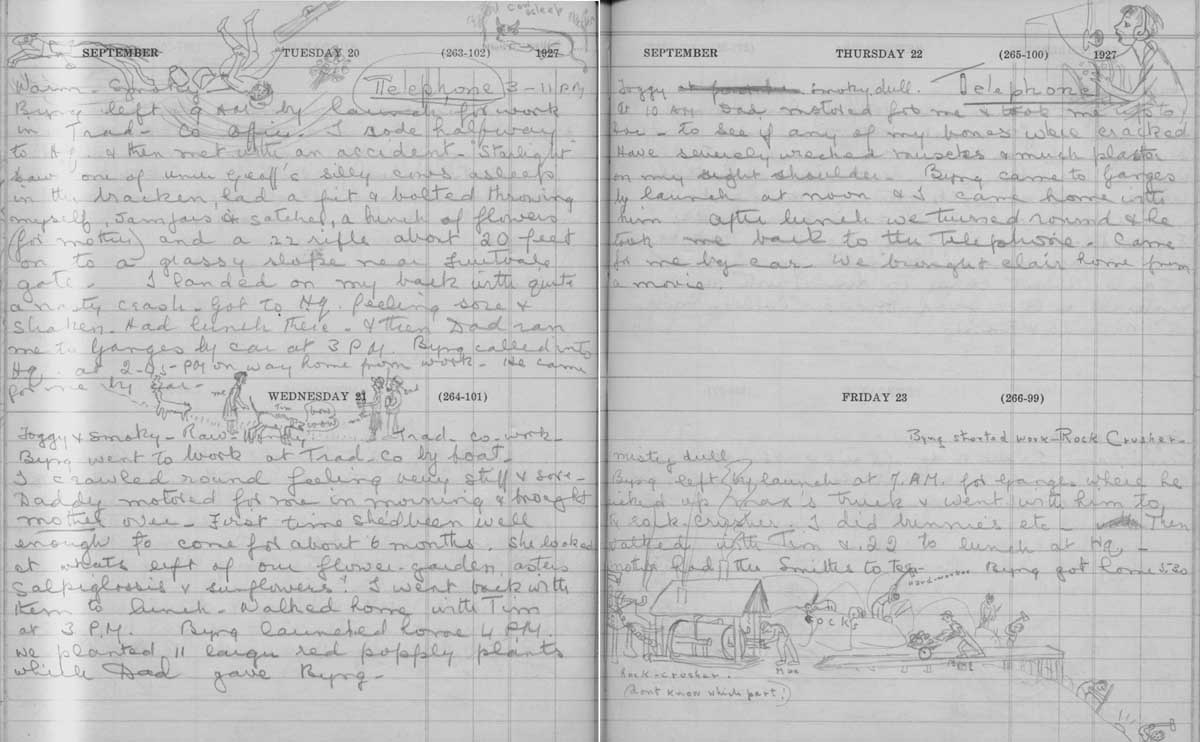 SEPTEMBER TUESDAY 20 (263-102) 1927
cow asleep
Warm - Smoky Telephone 3-11 PM
Byng left 9 AM by launch for work
in Trad- Co office. I rode halfway
to Hq. & then met with an accident - Starlight
saw one of uncle Geoff's silly cows asleep
in the bracken, had a fit & bolted throwing
myself, jamjars & satchel, a bunch of flowers
(for mother) and a 22 rifle about 20 feet
on to a grassy slope near Fruitvale
gate. I landed on my back with quite
a nasty crash. Got to Hq. feeling sore &
shaken. Had lunch there - & then Dad ran
me to Ganges by car at 3 P.M. Byng called into
Hq. at PM on way home from work - He came
for me by car -
WEDNESDAY 21 (264-101)
me Tim bow wow mother Dad
Foggy & smoky - Raw - Windy Trad- co- work-
Byng went to work at Trad-Co by boat-
I crawled round feeling very stiff & sore-
Daddy motored for me in morning & brought
mother over - First time she'd been well
enough to come for about 6 months. She looked
at whats left of our flower-garden, asters
Salpiglossis & sunflowers! I went back with
them to lunch - Walked home with Tim
at 3 P.M. Byng launched home 4 P.M.
We planted 11 large red poppy plants
while Dad gave Byng-
SEPTEMBER THURSDAY 22 (265-100) 1927
Foggy smoky, dull. Telephone
At 10 AM Dad motored for me & took me up to
- to see if any of my bones were cracked
Have severely wrecked muscles & much plaster
on my right shoulder. Byng came to Ganges
by launch at noon & I came home with
him After lunch we turned round & he
took me back to the Telephone - Came
for me by car - We brought Clair home from
a movie.
FRIDAY 23 (266-99)
Byng started work-Rock Crusher-
misty dull
Byng left by launch at 7 A.M. for Ganges where he
picked up Max's truck & went with him to
rock crusher. I did bunnies etc - Then
walked with Tim & .22 to lunch at Hq -
mother had the Smiths to Tea- Byng got home 5-30
Rocks
Rock-crusher. Max
(dont know which part!)